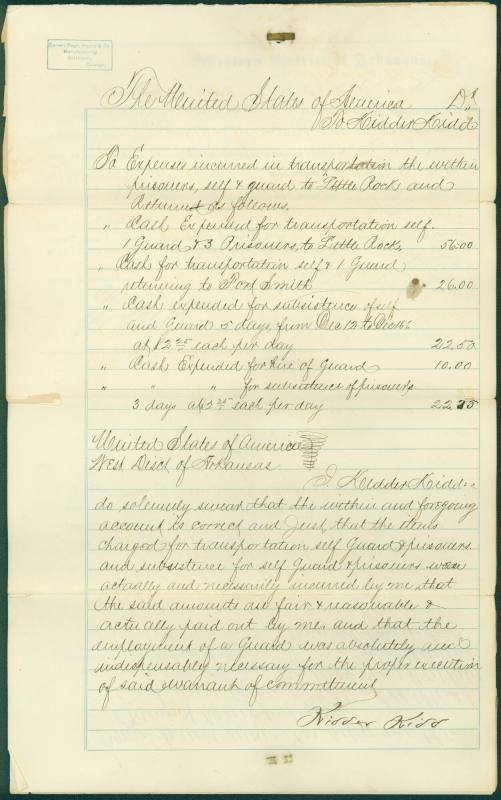 The United States of America Dr
To Kidder Kidd
To Expenses incurred in transportation the within
prisoners, self & guard to Little Rock and
Return as follows.
" Cash Expended for transportation self.
1 Guard, & 3 Prisoners, to Little Rock, 56.00
" Cash for transportation self & 1 Guard
returning to Fort Smith 26.00
" Cash expended for subsistence of self
and Guard 5 days from Dec 12 to Dec 16
at $2.25 each per day 22.50
" Cash Expended for hire of Guard 10.00
" " " for subsistence of prisoners
3 days at 2.25 each per day
United States of America
West Disct of Arkansas
I Kidder Kidd
do solemnly swear that the within and foregoing
account is correct and Just that the items
charged for transportation self Guard & prisoners
and subsistence for self Guard & prisoners were
actually and necessarily incurred by me that
the said amounts are fair & reasonable &
actually paid out by me, and that the
employment of a Guard was absolutely and
indispensably necessary for the proper execution
of said warrant of commitment
Kidder Kidd